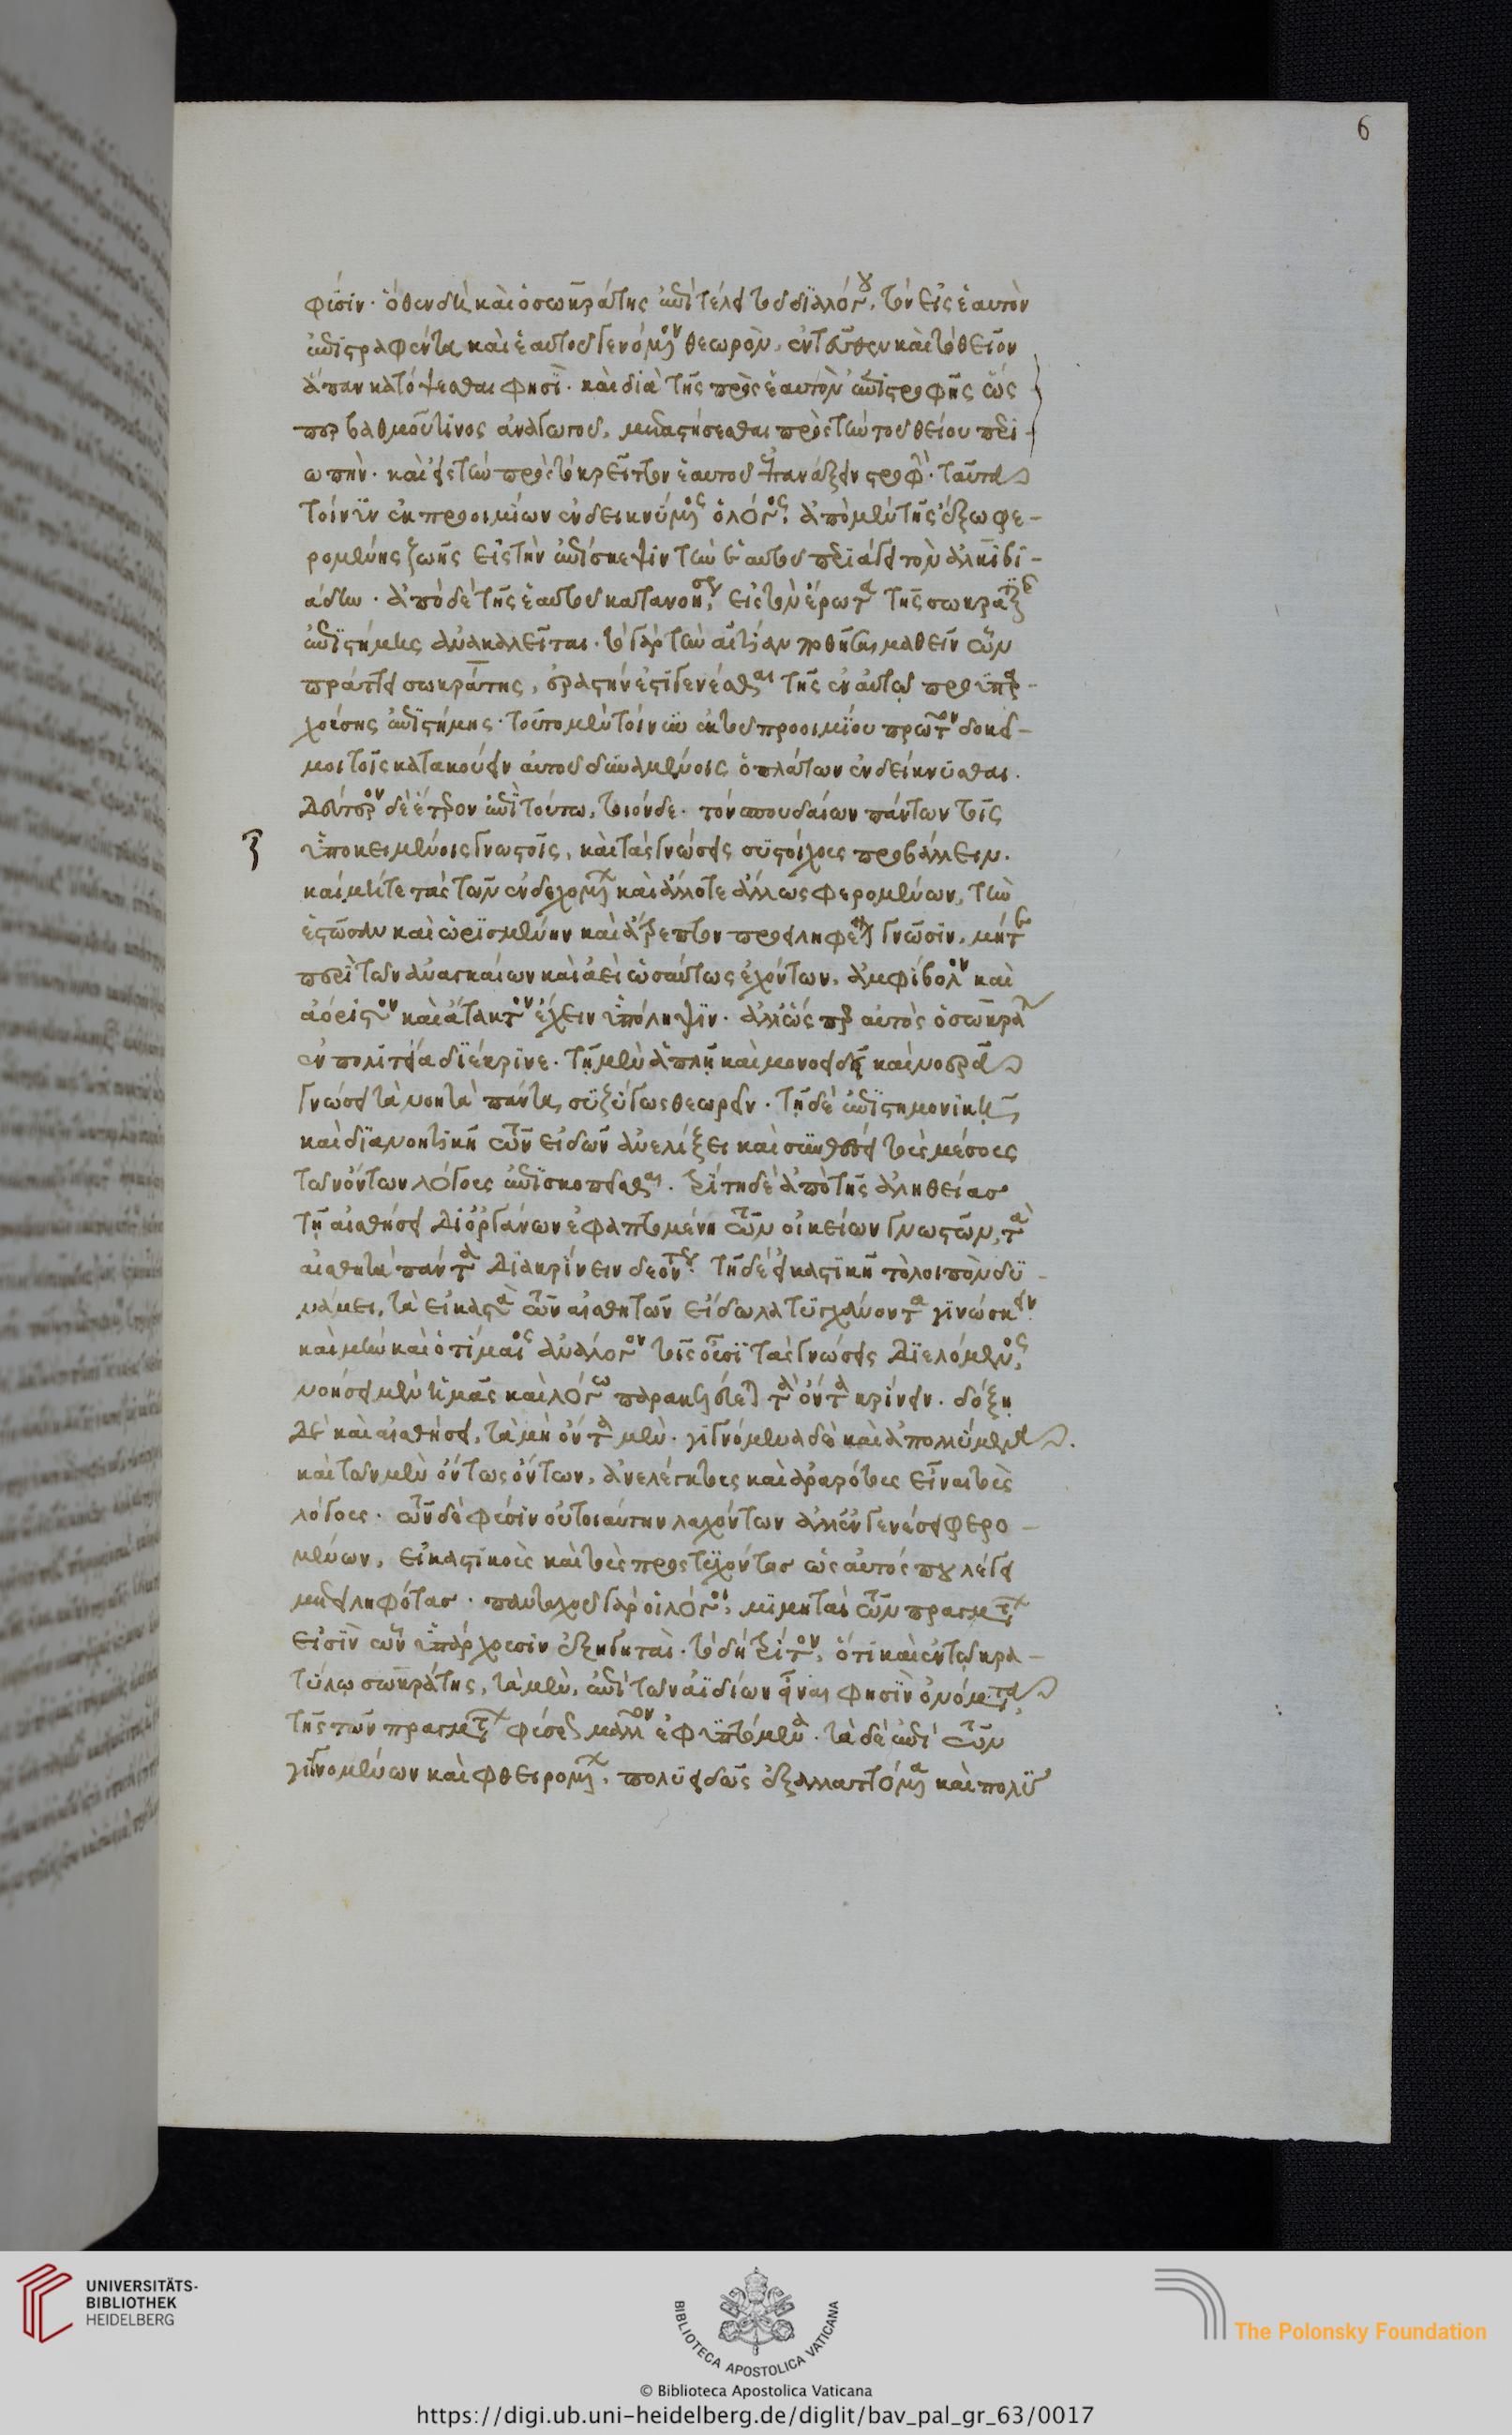 6
φύσιν. ὅθεν δὴ καὶ ὁ σωκράτης ἐπὶ τέλει τοῦ διαλόγου, τὸν εἰς ἑαυτὸν
ἐπιστραφέντα καὶ ἑαυτοῦ γενόμενον θεωρὸν, ἐντεῦθεν καὶ τὸ θεῖον
ἅπαν κατόψεσθαι φησὶ. καὶ διὰ τῆς πρὸς ἑαυτὸν ἐπιστροφῆς ὥς
περ βαθμοῦ τινος ἀναγωγοῦ, μεταστήσεσθαι πρὸς τὴν τοῦ θείου περι-
ωπὴν. καὶ εἰς τὴν πρὸς τὸ κρεῖττον ἑαυτοῦ ἐπανάξειν στροφὴν. ταῦτα
τοίνυν ἐκ προοιμίων ἐνδεικνύμενος ὁ λόγος, ἀπὸ μὲν τῆς ἔξω φε-
ρομένης ζωῆς εἰς τὴν ἐπίσκεψιν τὴν ἑαυτοῦ περιάγει τὸν ἀλκιβι-
άδην. ἀπὸ δὲ τῆς ἑαυτοῦ κατανοήσεως, εἰς τὸν ἔρωτα τῆς σωκρατικῆς
ἐπιστήμης ἀνακαλεῖται. τὸ γὰρ τὴν αἰτίαν ποθῆσαι μαθεῖν ὧν
πράττει σωκράτης, ἐραστήν ἐστι γενέσθαι τῆς ἐν αὐτῷ προϋπαρ-
χούσης ἐπιστήμης. τοῦτο μὲν τοίνυν ἐκ τοῦ προοιμίου πρῶτον δοκεῖ
μοι τοῖς κατακούειν αὐτοῦ δυναμένοις ὁ πλάτων ἐνδείκνυσθαι.
Δεύτερον δὲ ἕτερον ἐπὶ τούτῳ, τοιόνδε. τὸν σπουδαίων πάντων τοῖς
ὑποκειμένοις γνωστοῖς, καὶ τὰς γνώσεις συστοίχους προβάλλειν.
καὶ μήτε τὰς τῶν ἐνδεχομένων καὶ ἄλλοτε ἄλλως φερομένων, τὴν
ἑστῶσαν καὶ ὡρισμένην καὶ ἄτρεπτον προσληφέναι γνῶσιν, μήτε
περὶ τῶν ἀναγκαίων καὶ ἀεὶ ὡσαύτως ἐχόντων, ἀμφίβολον καὶ
ἀόριστον καὶ ἄτακτον ἔχειν ὑπόληψιν. ἀλλ' ὥς περ αὐτὸς ὁ σωκράτης
ἐν πολιτείᾳ διέκρινε. τῇ μὲν ἁπλῇ καὶ μονοειδεῖ καὶ νοερᾷ
γνώσει τὰ νοητὰ πάντα, συζύγως θεωρεῖν. τῇ δὲ ἐπιστημονικῇ
καὶ διανοητικῇ τῶν εἰδῶν ἀνελίξει καὶ συνθέσει τοὺς μέσους
τῶν ὄντων λόγους ἐπισκοπεῖσθαι. τρίτῃ δὲ ἀπὸ τῆς ἀληθείας
τῇ αἰσθήσει δι' ὀργάνων ἐφαπτομένῃ τῶν οἰκείων γνωστῶν, τὰ
αἰσθητὰ πάντα διακρίνειν δεόντως. τῇ δὲ εἰκαστικῇ τὸ λοιπὸν δυ-
νάμει, τὰ εἰκαστὰ τῶν αἰσθητῶν εἴδωλα τυγχάνοντα γινώσκειν.
καὶ μὴν καὶ ὁ τίμαιος ἀνάλογον τοῖς οὖσι τὰς γνώσεις διελόμενος,
νοήσει μὲν ἡμᾶς καὶ λόγῳ παρακελεύεται τὰ ὄντα κρίνειν. δόξῃ
δὲ καὶ αἰσθήσει, τὰ μὴ ὄντα μὲν. γιγνόμενα δὲ καὶ ἀπολλύμενα.
καὶ τῶν μὲν ὄντως ὄντων, ἀνελέγκτους καὶ ἀραρότους εἶναι τοὺς
λόγους. τῶν δὲ φύσιν οὐ τοιαύτην λαχόντων ἀλλ' ἐν γενέσει φερο-
μένων, εἰκαστικοὺς καὶ τοὺς προστυχόντας ὡς αὐτός που λέγει
μετειληφότας. πανταχοῦ γὰρ οἱ λόγοι, μιμηταὶ τῶν πραγμάτων
εἰσὶν ὧν ὑπάρχουσιν ἐξηγηταὶ. τὸ δὴ τρίτον, ὅτι καὶ ἐν τῷ κρα-
τύλῳ σωκράτης, τὰ μὲν, ἐπὶ τῶν ἀϊδίων εἶναι φησὶν ὀνόματα
τῆς τῶν πραγμάτων φύσεως μᾶλλον ἐφαπτόμενα. τὰ δὲ ἐπὶ τῶν
γιγνομένων καὶ φθειρομένων, πολυειδῶς ἐξαλλαττόμενα καὶ πολὺ
UNIVERSITÄTS-
BIBLIOTHEK
HEIDELBERG
BIBLIOTECA APOSTOLICA VATICANA
The Polonsky Foundation
© Biblioteca Apostolica Vaticana
https://digi.ub.uni-heidelberg.de/diglit/bav_pal_gr_63/0017